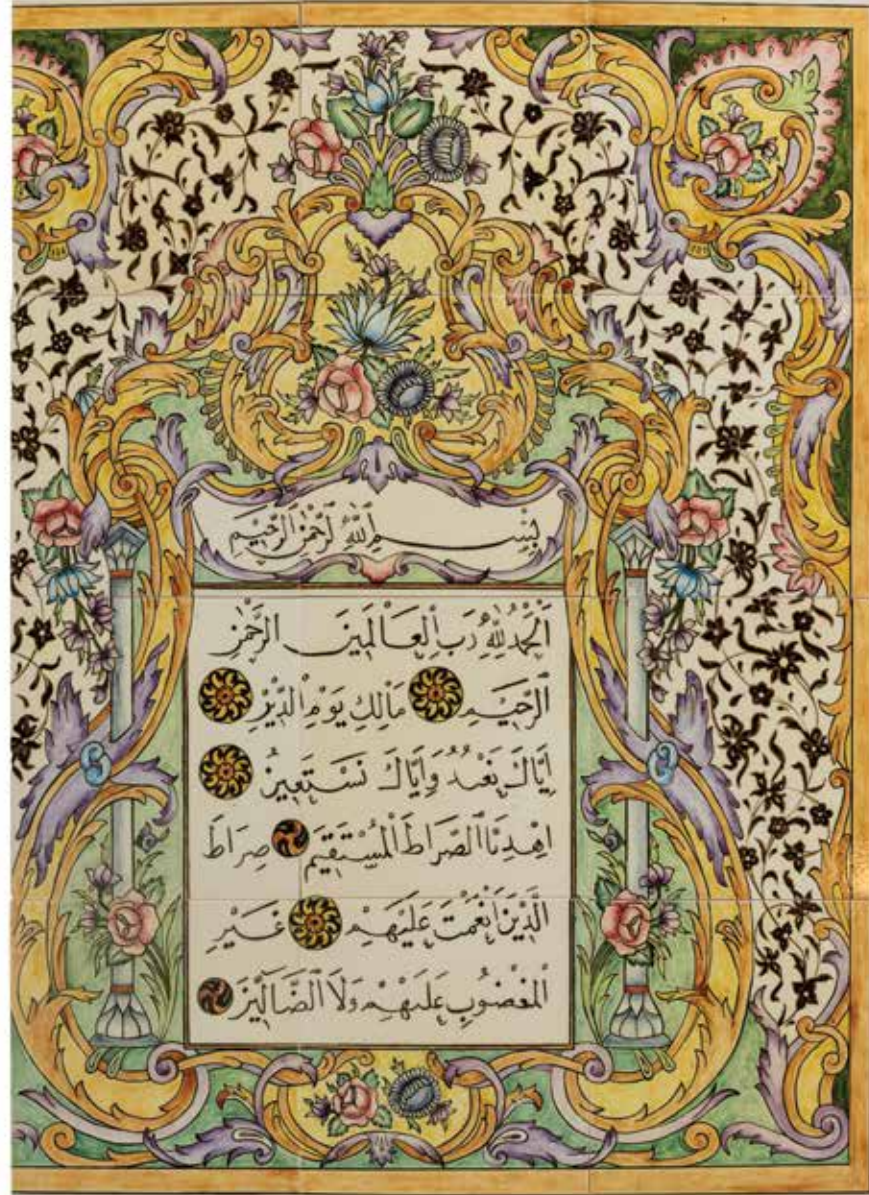 بِسْمِ اللَّهِ الرَّحْمٰنِ الرَّحِيمِ
اَلْحَمْدُ لِلَّهِ رَبِّ الْعَالَمِينَ الرَّحْمٰنِ
الرَّحِيمِ مَالِكِ يَوْمِ الدِّينِ
اِيَّاكَ نَعْبُدُ وَاِيَّاكَ نَسْتَعِينُ
اِهْدِنَا الصِّرَاطَ الْمُسْتَقِيمَ صِرَاطَ
الَّذِينَ اَنْعَمْتَ عَلَيْهِمْ غَيْرِ
الْمَغْضُوبِ عَلَيْهِمْ وَلَا الضَّالِّينَ